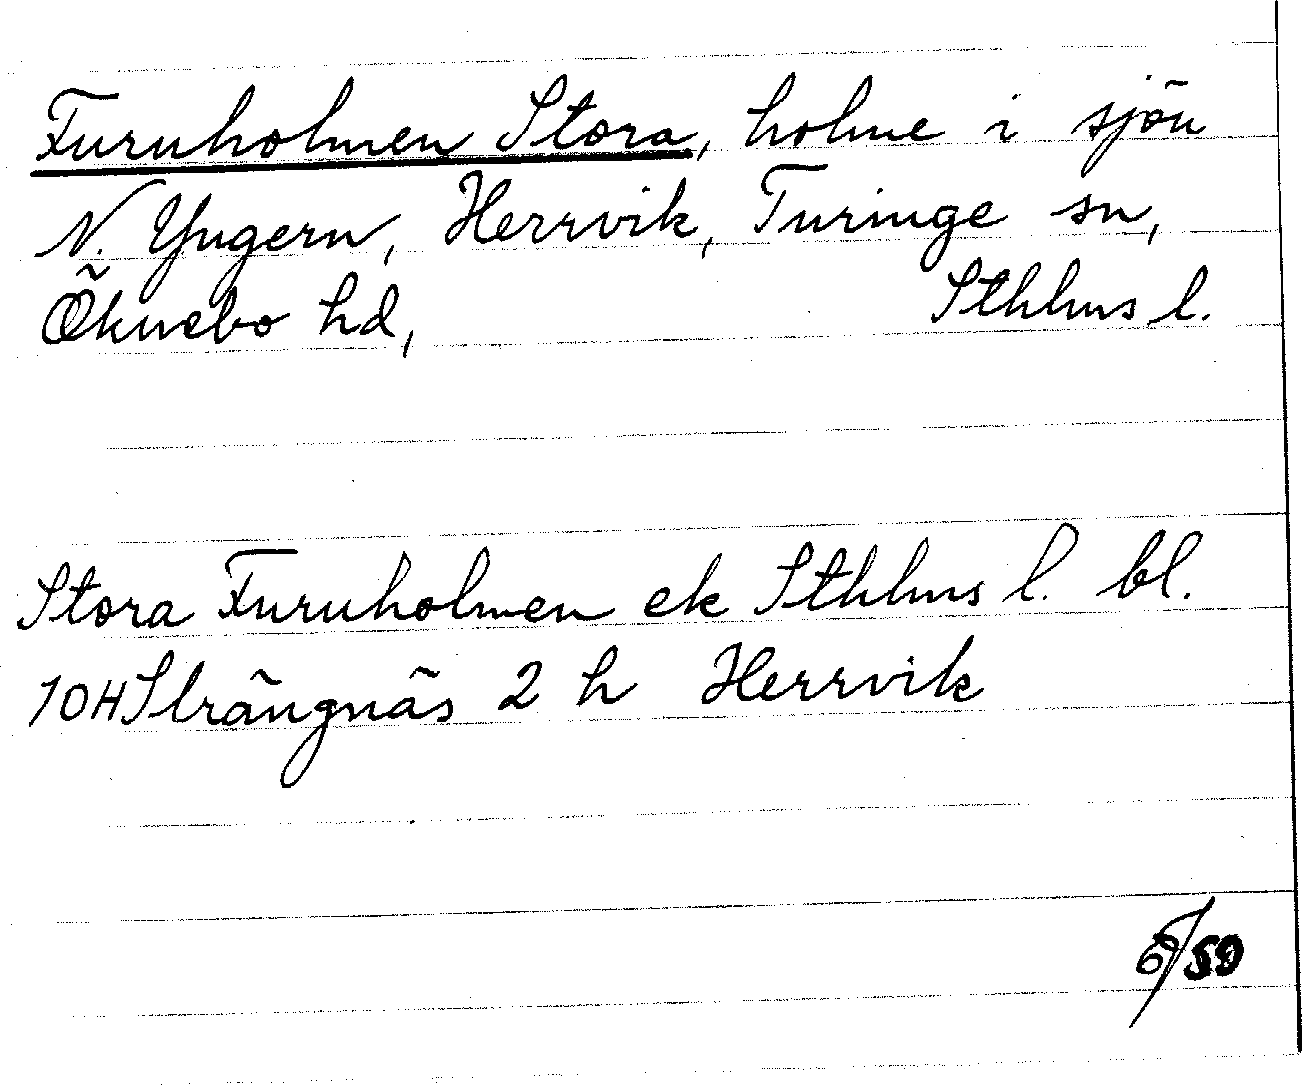 Furuholmen Stora, holme i sjön
N. Yngern, Herrvik, Turinge sn,
Öknebo hd, Sthlms l.
Stora Furuholmen ek Sthlms l. bl.
10H Strängnäs 2 h Herrvik
6/59